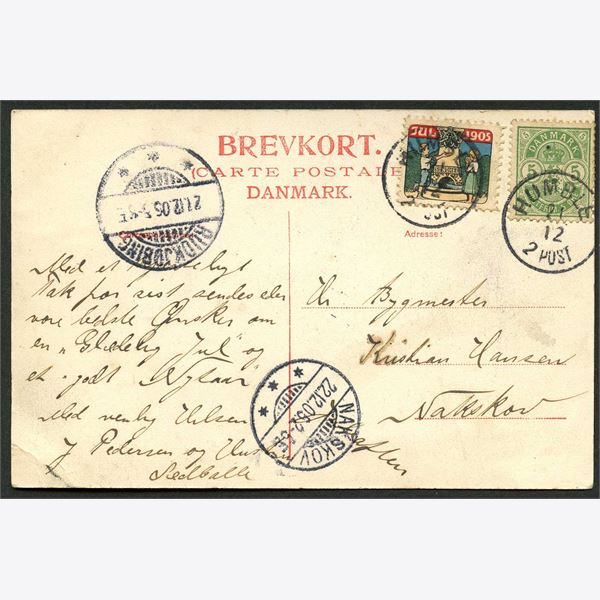 BREVKORT.
(CARTE POSTALE
DANMARK.
JUL 1905
DANMARK
5 5
HUMBLE
21
12
2 POST
RUDKJØBING
21.12.05.
Adresse:
Med et
Tak for sist sendes der
vore bedste Ønsker om
en „Glædelig Jul" og
et godt Nytaar
Med venlig Hilsen
J Pedersen og Hustru
Hr Bygmester
Kristian Hansen
Nakskov
NAKSKOV
22.12.05.